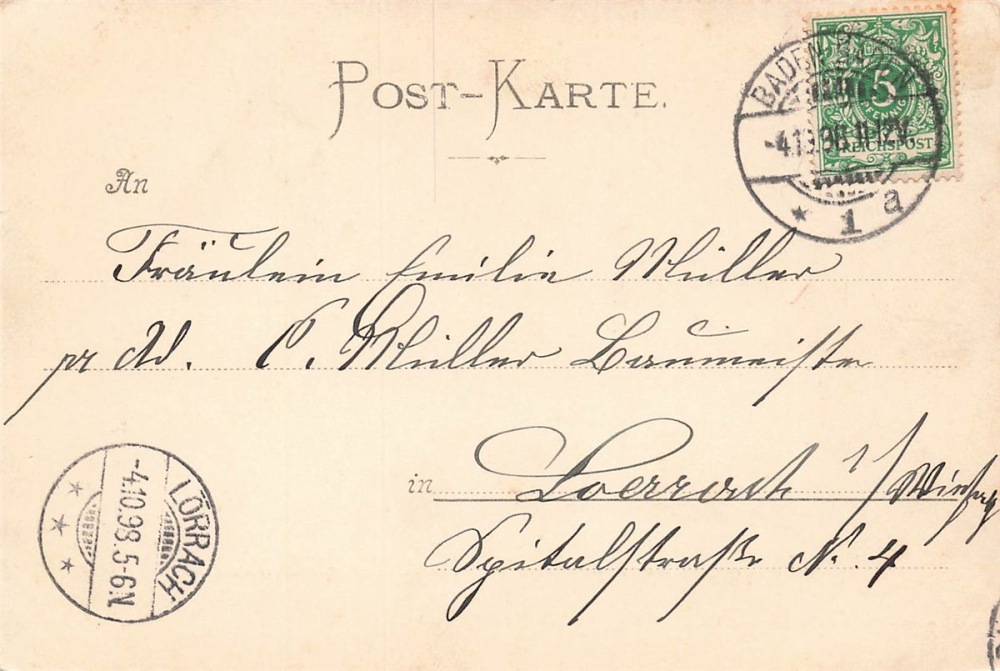 POST-KARTE.
BADEN-BADEN
5
PFENNIG
REICHSPOST
-4.10.98.11-12V.
* 1 a
An
Fräulein Emilie Müller
pr Ad. C. Müller Baumeister
in Loerrach i/Wiesen
Spitalstraße N. 4
LÖRRACH
-4.10.98.5-6.N